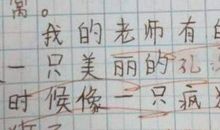 窝。
我的老师有的
一只美丽的孔
时候像一只疯